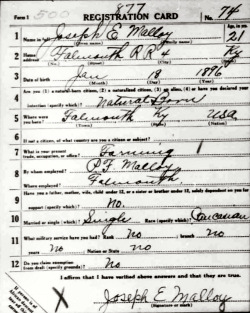 Form 1 500 877 REGISTRATION CARD No. 74
1 Name in full Joseph E Malloy Age, in yrs. 21
2 Home address Falmouth R.R. Ky
3 Date of birth Jan 18 1896
(Month) (Day) (Year)
4 Are you (1) a natural-born citizen, (2) a naturalized citizen, (3) an alien, (4) or have you declared your
intention (specify which)? Natural Born
5 Where were you born? Falmouth Ky USA
6 If not a citizen, of what country are you a citizen or subject?
7 What is your present trade, occupation, or office? Farming
8 By whom employed? P.F. Malloy
Where employed? Falmouth
9 Have you a father, mother, wife, child under 12, or a sister or brother under 12, solely dependent on you for
support (specify which)? No.
10 Married or single (which)? Single Race (specify which)? Caucasian
11 What military service have you had? Rank No branch No
years no Nation or State No
12 Do you claim exemption from draft (specify grounds)? No
I affirm that I have verified above answers and that they are true.
X Joseph E. Malloy